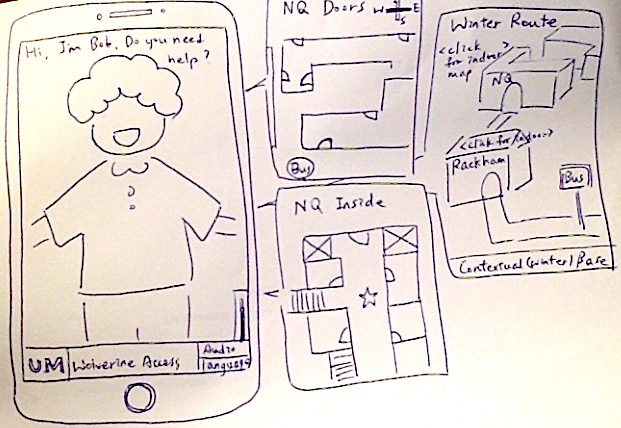 Hi, I'm Bob. Do you need
help?
UM
Wolverine Access
Audio
language
NQ Doors
W
E
S
Bus
NQ Inside
Winter Route
<click
for indoor
map
>
NQ
<click for indoor>
Rackham
Bus
Contextual (winter) Base